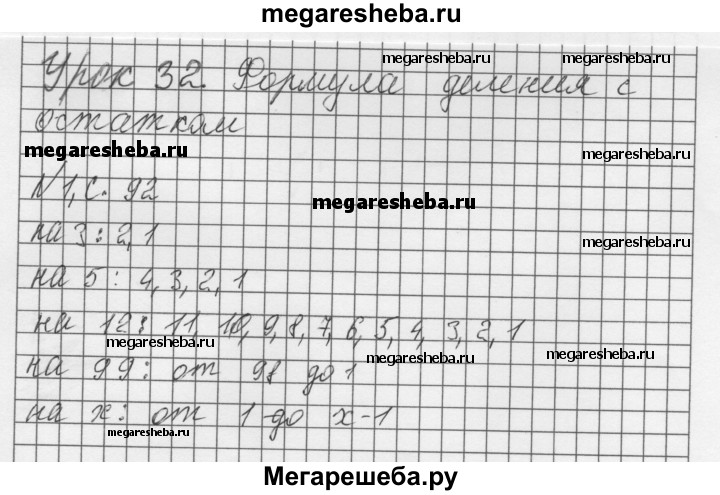 megaresheba.ru
Урок 32. Формула деления с
megaresheba.ru
megaresheba.ru
остатком
megaresheba.ru
megaresheba.ru
N 1, с. 92
megaresheba.ru
на 3: 2, 1
megaresheba.ru
на 5: 4, 3, 2, 1
на 12: 11, 10, 9, 8, 7, 6, 5, 4, 3, 2, 1
megaresheba.ru
megaresheba.ru
megaresheba.ru
на 99: от 98 до 1
на x: от 1 до x-1
megaresheba.ru
Мегарешеба.ру